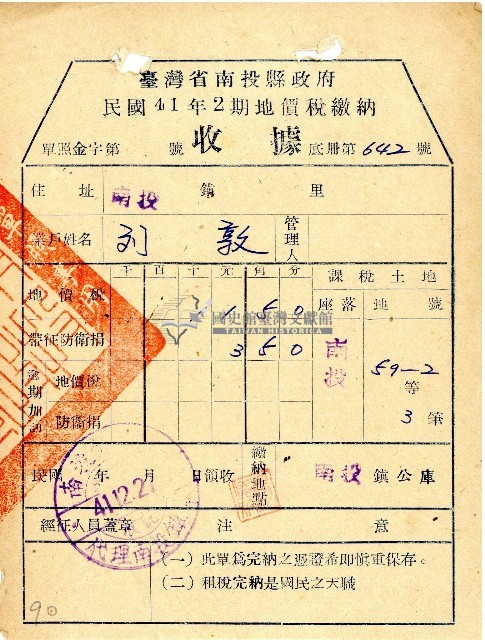 臺灣省南投縣政府
民國41年2期地價稅繳納
單照金字第 號 收據 底册第642號
住址 南投 鎮 里
業戶姓名 刘敦 管理人
千百十元角分 課稅土地
地價稅 1 5 0 座落 地號
帶征防衛捐 3 5 0 南投 59-2
逾期加 地價稅 等
防衛捐 3筆
民國 年 月 日領收 繳納地點 南投鎮公庫
41.12.2
代理南投
經征人員蓋章 注意
(一)此單爲完納之憑證希即慎重保存。
(二)租稅完納是國民之天職
90
國史館臺灣文獻館
TAIWAN HISTORICA